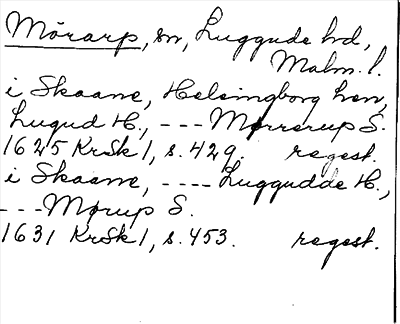 Mörarp, sn, Luggude hd,
Malm. l.
i Skaane, Helsingborg len,
Lugud H., --- Mørrerup S.
1625 KrSk 1, s. 429. regest.
i Skaane, ---- Luggudde H.,
--- Mørup S.
1631 KrSk 1, s. 453. regest.